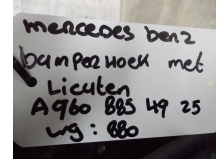 mercedes benz
bumperhoek met
Licuten
A960 885 49 25
wg: 880